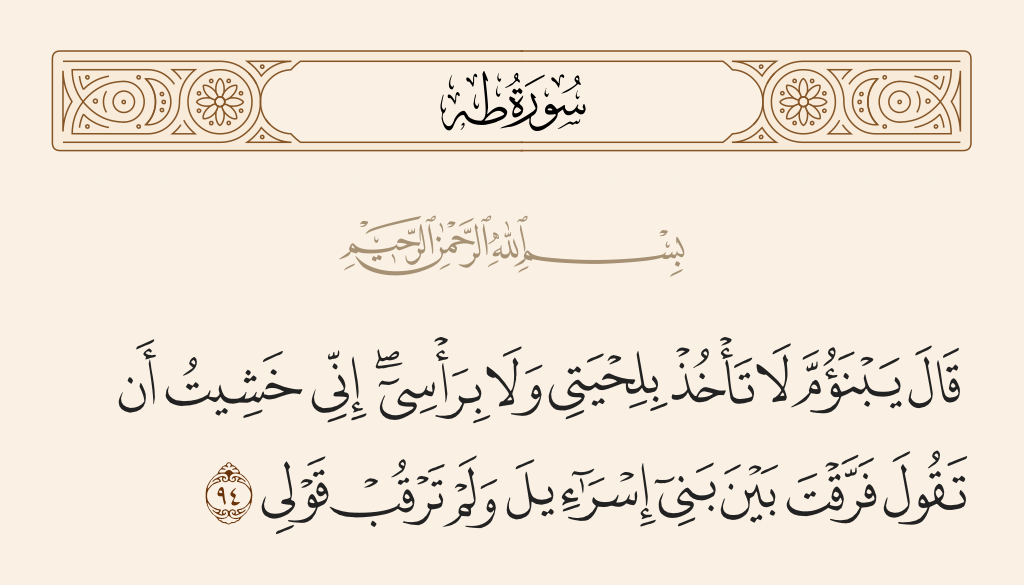 سُورَةُ طه
بِسْمِ ٱللَّهِ ٱلرَّحْمَٰنِ ٱلرَّحِيمِ
قَالَ يَبْنَؤُمَّ لَا تَأْخُذْ بِلِحْيَتِى وَلَا بِرَأْسِىٓ ۖ إِنِّى خَشِيتُ أَن
تَقُولَ فَرَّقْتَ بَيْنَ بَنِىٓ إِسْرَٰٓءِيلَ وَلَمْ تَرْقُبْ قَوْلِى ٩٤